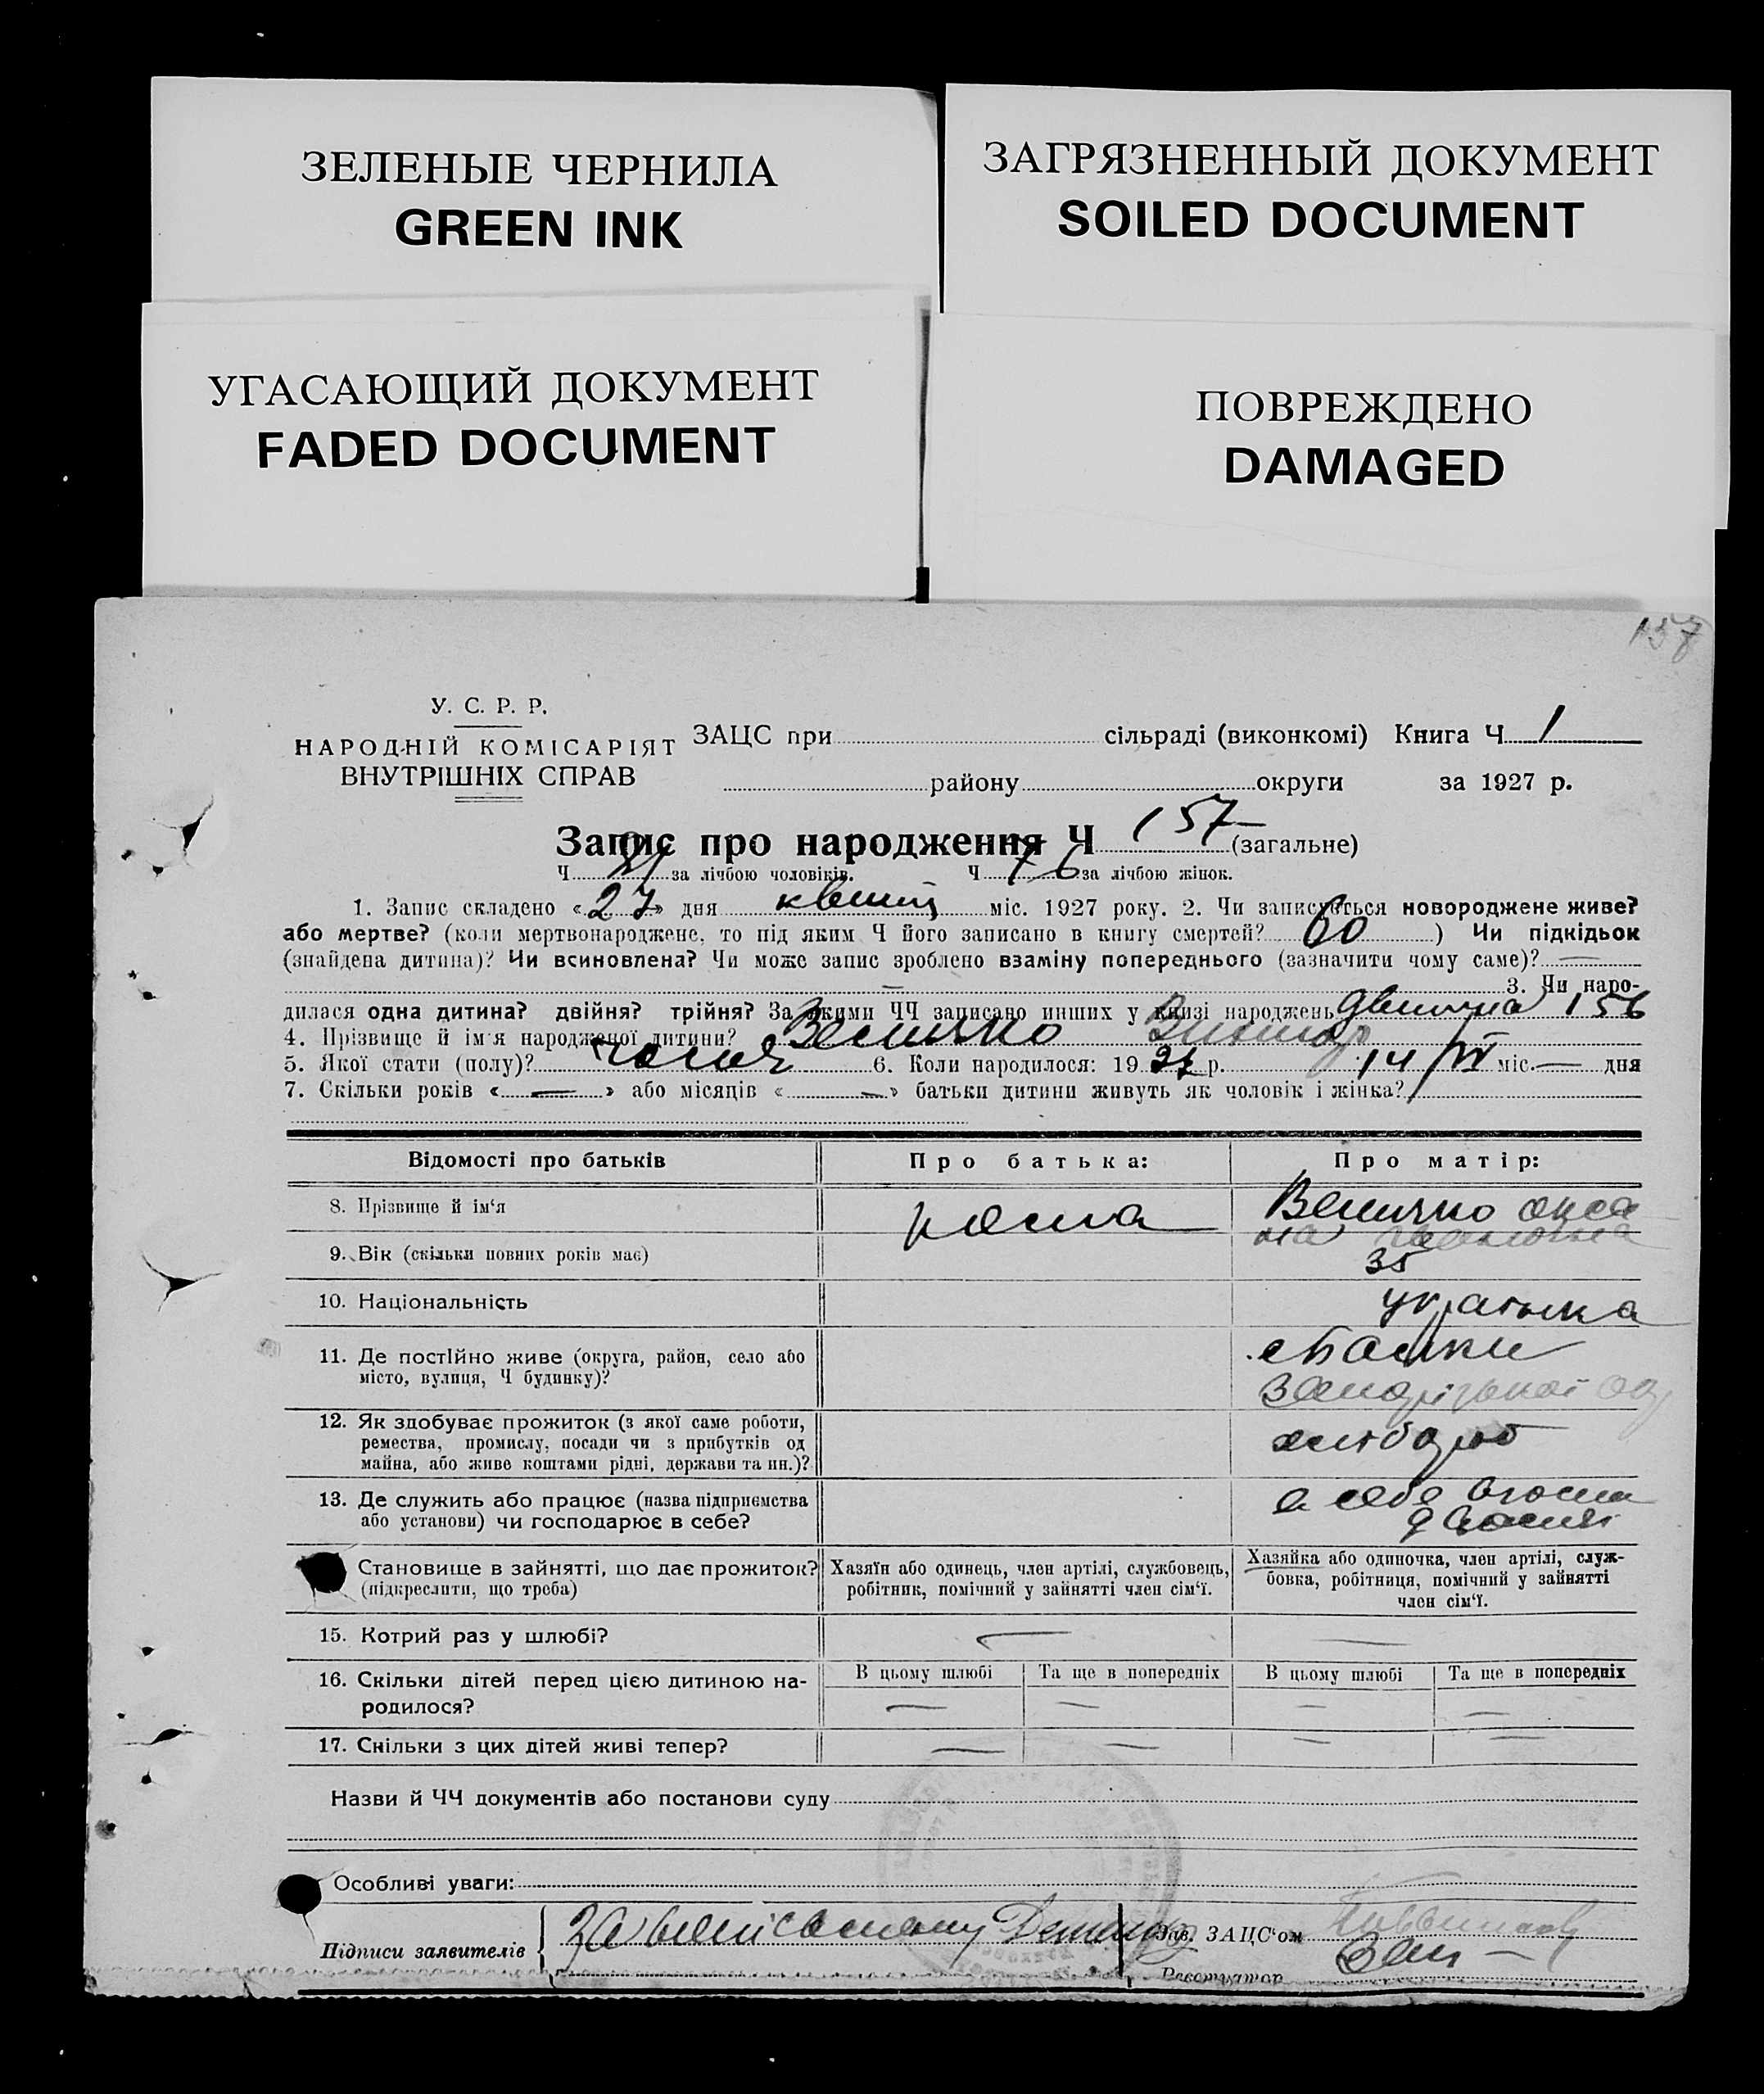 ЗЕЛЕНЫЕ ЧЕРНИЛА
GREEN INK
ЗАГРЯЗНЕННЫЙ ДОКУМЕНТ
SOILED DOCUMENT
УГАСАЮЩИЙ ДОКУМЕНТ
FADED DOCUMENT
ПОВРЕЖДЕНО
DAMAGED
157
У. С. Р. Р.
НАРОДНІЙ КОМІСАРІЯТ
ВНУТРІШНІХ СПРАВ
ЗАЦС при сільраді (виконкомі) Книга Ч 1
району округи за 1927 р.
Запис про народження Ч 157 (загальне)
Ч 81 за лічбою чоловіків. Ч 76 за лічбою жінок.
1. Запис складено « 27 » дня квітня міс. 1927 року. 2. Чи записується новороджене живе?
або мертве? (коли мертвонароджене, то під яким Ч його записано в книгу смертей? 60 ) Чи підкідьок
(знайдена дитина)? Чи всиновлена? Чи може запис зроблено взаміну попереднього (зазначити чому саме)? —
— 3. Чи наро-
дилася одна дитина? двійня? трійня? За якими ЧЧ записано инших у книзі народжень 156
4. Прізвище й ім'я народженої дитини? Величко Виктор
5. Якої стати (полу)? 6. Коли народилося: 19 27 р. 14/IV міс. — дня
7. Скільки років « — » або місяців « — » батьки дитини живуть як чоловік і жінка?
Відомості про батьків Про батька: Про матір:
8. Прізвище й ім'я Величко Окса
на
9. Вік (скільки повних років має) 35
10. Національність українка
11. Де постійно живе (округа, район, село або
місто, вулиця, Ч будинку)?
12. Як здобуває прожиток (з якої саме роботи,
ремества, промислу, посади чи з прибутків од
майна, або живе коштами рідні, держави та ин.)?
хлібороб
13. Де служить або працює (назва підприємства
або установи) чи господарює в себе?
Становище в зайнятті, що дає прожиток?
(підкреслити, що треба)
Хазяїн або одинець, член артілі, службовець,
робітник, помічний у зайнятті член сім'ї.
Хазяйка або одиночка, член артілі, служ-
бовка, робітниця, помічний у зайнятті
член сім'ї.
15. Котрий раз у шлюбі? — —
16. Скільки дітей перед цією дитиною на-
родилося?
В цьому шлюбі Та ще в попередніх В цьому шлюбі Та ще в попередніх
— — — —
17. Скільки з цих дітей живі тепер? — — — —
Назви й ЧЧ документів або постанови суду
Особливі уваги:
Підписи заявителів Зав. ЗАЦС'ом
Реєстратор